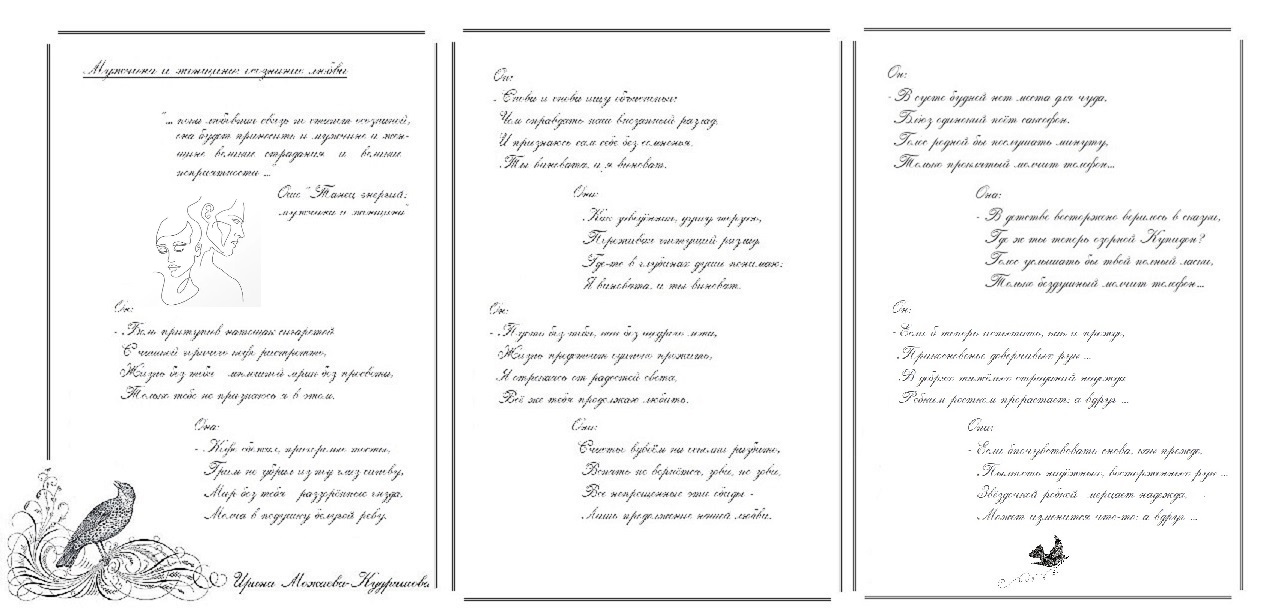 Мужчина и женщина: сознание любви
"... пока любовная связь не станет осознанной,
она будет приносить и мужчине и жен-
щине великие страдания и великие
неприятности ...
Ошо "Танец энергий:
мужчина и женщина"
Он:
- Боль притупив натощак сигаретой
С чашкой горчего кофе рассветы,
Жизнь без тебя мрак без просвета,
Только тебе не признаюсь я в этом.
Она:
- Кофе сбежал, пригорели тосты,
Грим не убрал из-под глаз синеву,
Мир без тебя разорённые гнёзда.
Молча в подушку белугой реву.
Ирина Можаева-Кудряшова
Он:
- Снова и снова ищу объясненья:
Чем оправдать наш внезапный разлад,
И признаюсь сам себе без сомненья
Ты виновата, и я виноват.
Она:
Как заведённая, ужин
Переживая разлад,
Где-то в глубинах души понимаю:
Я виновата, и ты виноват.
Он:
- Пусть без тебя, как без щедрого лета,
Жизнь предстоит одиноко прожить,
Я отрекаюсь от радостей света,
Всё же тебя продолжаю любить.
Она:
Счастье вдвоём мы сумели разбить,
Вспять не вернётся, зови, не зови,
Все непрощенные эти обиды -
Лишь продолжение нашей любви.
Он:
- В суете будней нет места для чуда,
Блюз одинокий поёт саксофон.
Голос родной бы послушать минуту,
Только проклятый молчит телефон...
Она:
- В детстве восторженно верилось в сказки,
Где ж ты теперь озорной Купидон?
Голос услышать бы твой полный ласки,
Только бездушный молчит телефон...
Он:
- Если б теперь испытать, как и прежде,
Прикосновенье доверчивых рук ...
В дебрях тяжёлых страданий надежда
Робким ростком прорастает: а вдруг ...
Она:
- Если б почувствовать снова, как прежде
Пылкость надёжных, восторженных рук ...
Звёздочкой робкой мерцает надежда.
Может изменится что-то: а вдруг ...